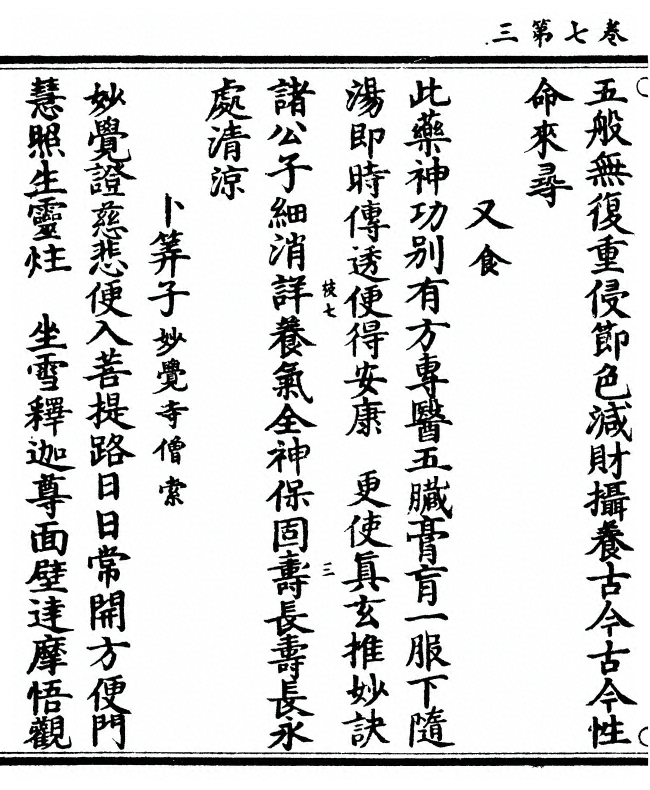 卷七第三
五般無復重侵節色減財攝養古今古今性
命來尋
又食
此藥神功别有方專醫五臟膏肓一服下隨
湯即時傳透便得安康　更使真玄推妙訣
諸公子細消詳養氣全神保固壽長壽長永
處清涼
卜筭子妙覺寺僧索
妙覺證慈悲便入菩提路日日常開方便門
慧照生靈炷　坐雪釋迦尊面壁達摩悟觀
三